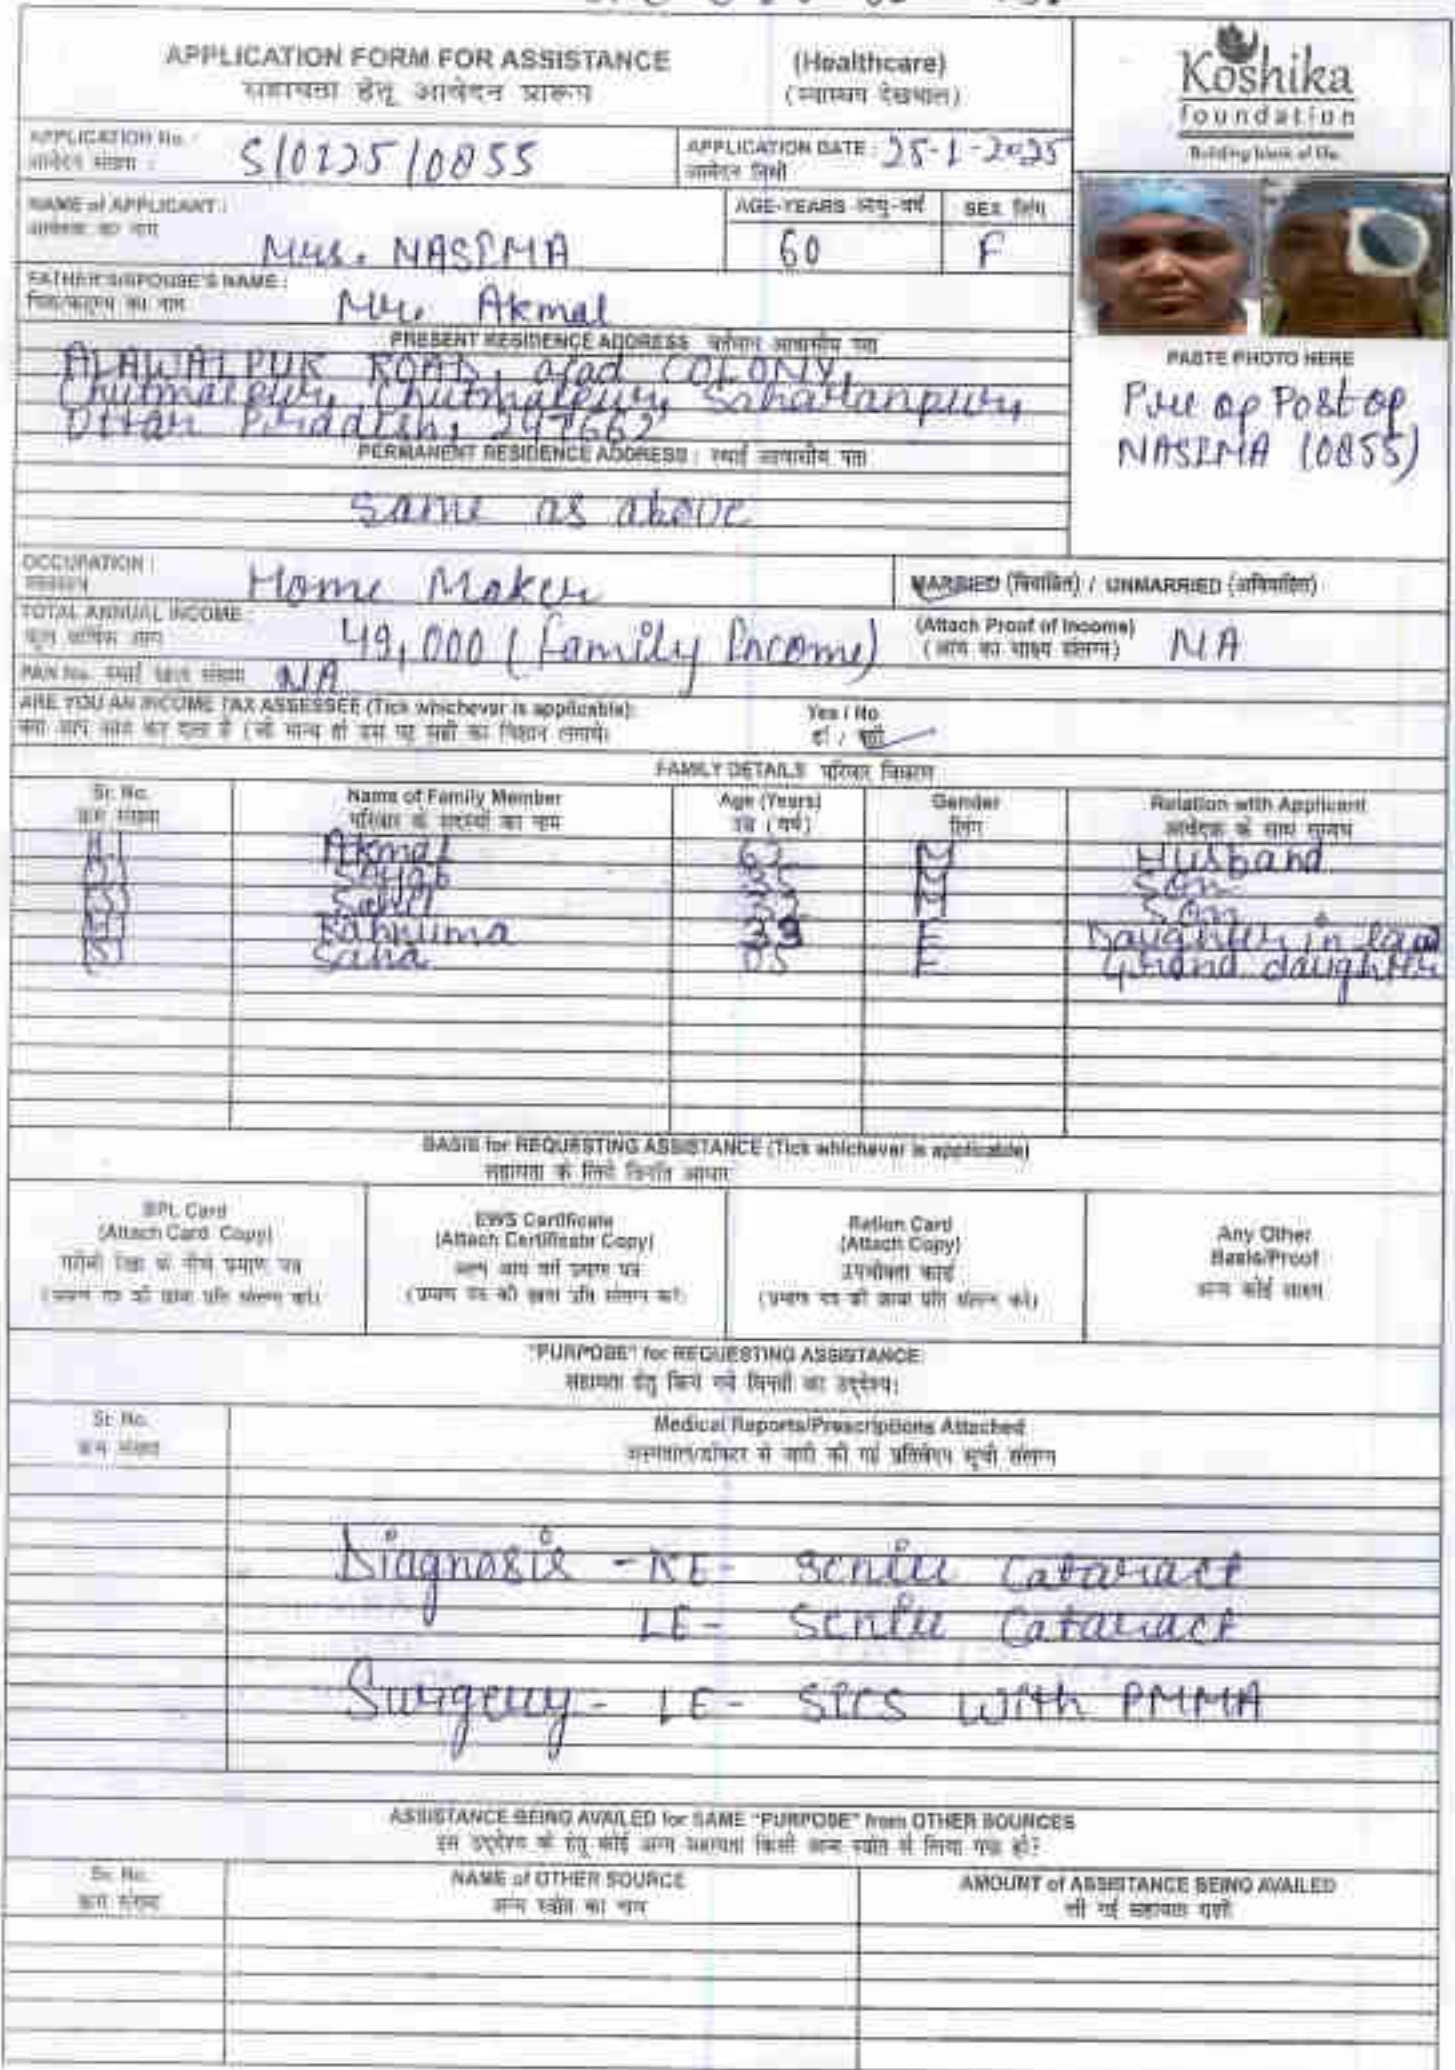 APPLICATION FORM FOR ASSISTANCE (Healthcare)
सहायता हेतु आवेदन प्रारूप (स्वास्थय देखभाल)
Koshika
foundation
Building block of life
APPLICATION No. :
आवेदन संख्या : S/0125/0855
APPLICATION DATE : 25-1-2025
आवेदन तिथी
NAME of APPLICANT :
आवेदक का नाम
Mrs. NASIMA
AGE-YEARS आयु-वर्ष 60
SEX लिंग F
FATHER'S/SPOUSE'S NAME :
Mr. Akmal
PRESENT RESIDENCE ADDRESS वर्तमान आवासीय पता
ALAWALPUR ROAD, azad COLONY,
Chutmalpur, Chutmalpur, Saharanpur,
Uttar Pradesh, 247662
PERMANENT RESIDENCE ADDRESS : स्थाई आवासीय पता
same as above
PASTE PHOTO HERE
Pre op Post op
NASIMA (0855)
OCCUPATION :
व्यवसाय
Home Maker
MARRIED (विवाहित) / UNMARRIED (अविवाहित)
TOTAL ANNUAL INCOME :
कुल वार्षिक आय
49,000 (Family Income)
(Attach Proof of Income)
(आय का साक्ष्य संलग्न) NA
PAN No. स्थाई खाता संख्या NA
ARE YOU AN INCOME TAX ASSESSEE (Tick whichever is applicable): Yes / No
क्या आप आय कर दाता है (जो मान्य हो उस पर सही का निशान लगाये) हाँ / नहीं
FAMILY DETAILS परिवार विवरण
Sr. No. Name of Family Member Age (Years) Gender Relation with Applicant
क्रम संख्या परिवार के सदस्यों का नाम उम्र (वर्ष) लिंग आवेदक के साथ सम्बन्ध
(1) Akmal 62 M Husband
(2) 35 M Son
(3) Sahil 32 M Son
(4) Rahnuma 33 F Daughter in law
(5) Sana 05 F Grand daughter
BASIS for REQUESTING ASSISTANCE (Tick whichever is applicable)
सहायता के लिये विनति आधार
BPL Card
(Attach Card Copy)
गरीबी रेखा के नीचे प्रमाण पत्र
(प्रमाण पत्र की छाया प्रति संलग्न करें)
EWS Certificate
(Attach Certificate Copy)
अल्प आय वर्ग प्रमाण पत्र
(प्रमाण पत्र की छाया प्रति संलग्न करें)
Ration Card
(Attach Copy)
उपभोक्ता कार्ड
(प्रमाण पत्र की छाया प्रति संलग्न करें)
Any Other
Basis/Proof
अन्य कोई साक्ष्य
"PURPOSE" for REQUESTING ASSISTANCE:
सहायता हेतु किये गये विनती का उद्देश्य:
Sr. No. Medical Reports/Prescriptions Attached
क्रम संख्या
Diagnosis - RE- Senile Cataract
LE- Senile Cataract
Surgery - LE- SICS with PMMA
ASSISTANCE BEING AVAILED for SAME "PURPOSE" from OTHER SOURCES
इस उद्देश्य के हेतु कोई अन्य सहायता किसी अन्य स्त्रोत से लिया गया हो?
Sr. No. NAME of OTHER SOURCE AMOUNT of ASSISTANCE BEING AVAILED
क्रम संख्या अन्य स्त्रोत का नाम ली गई सहायता राशी